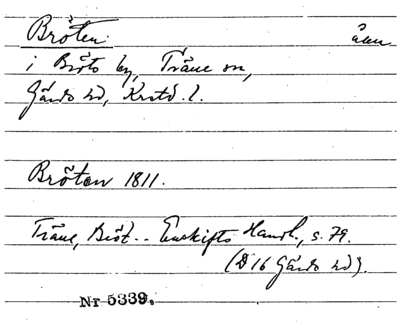 Bröten åker
i Bröts by, Träne sn,
Gärds hd, Krstd. l.
Bröten 1811.
Träne, Bröt.. Enskifts Handl., s. 79.
(D16 Gärds hd).
Nr 5339.